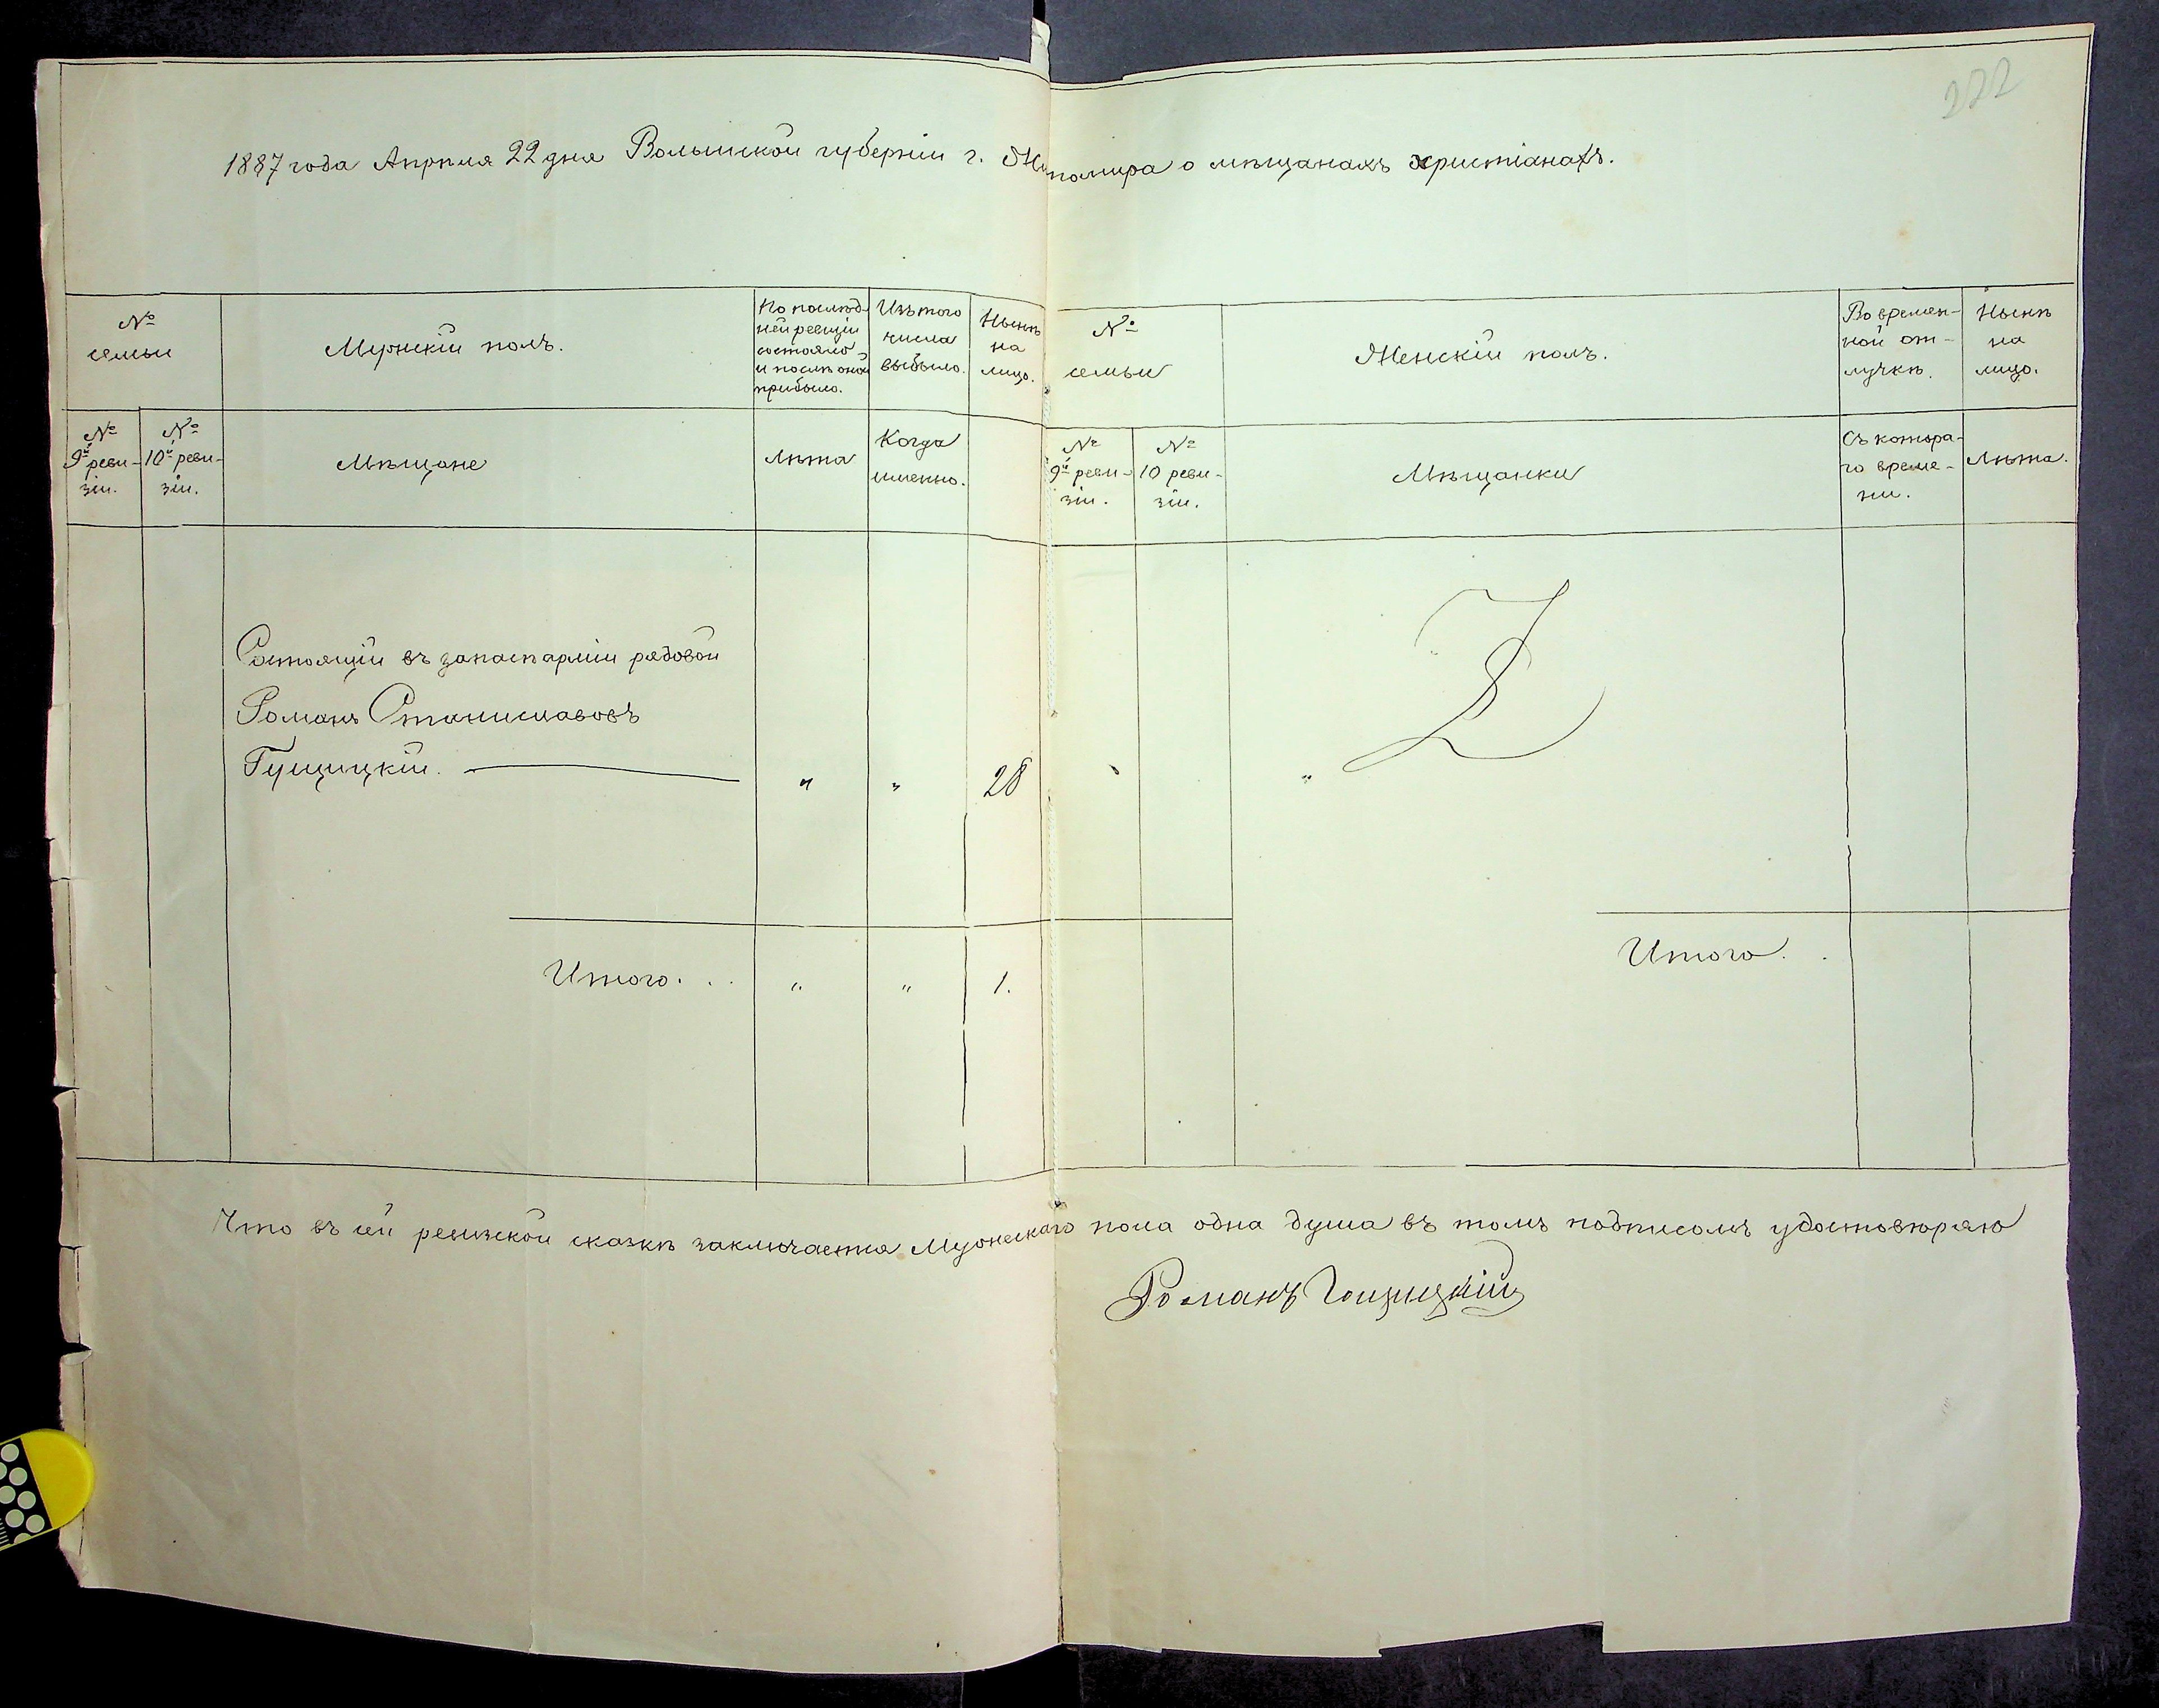 222
1887 года Апрѣля 22 дня Волынской губерніи г. Житомира о мѣщанахъ христіанахъ.
№ семьи
Мужскій полъ.
По послѣд-
ней ревизіи
состояло
и послѣ оной
прибыло.
Изъ того
числа
выбыло.
Нынѣ
на
лицо.
№
семьи
Женскій полъ.
Во времен-
ной от-
лучкѣ.
Нынѣ
на
лицо.
№
9й реви-
зіи.
№
10й реви-
зіи.
Мѣщане
Лѣта
Когда
именно.
№
9й реви-
зіи.
№
10 реви-
зіи.
Мѣщанки
Съ котора-
го време-
ни.
Лѣта.
Состоящій въ запасѣ арміи рядовой
Романъ Станиславовъ
Гущицкій. — " " 28 "
Итого. . . " " 1.
Итого. .
Что въ сей ревизской сказкѣ заключается Мужескаго пола одна душа въ томъ подписомъ удостовѣряю
Романъ Гощицкій